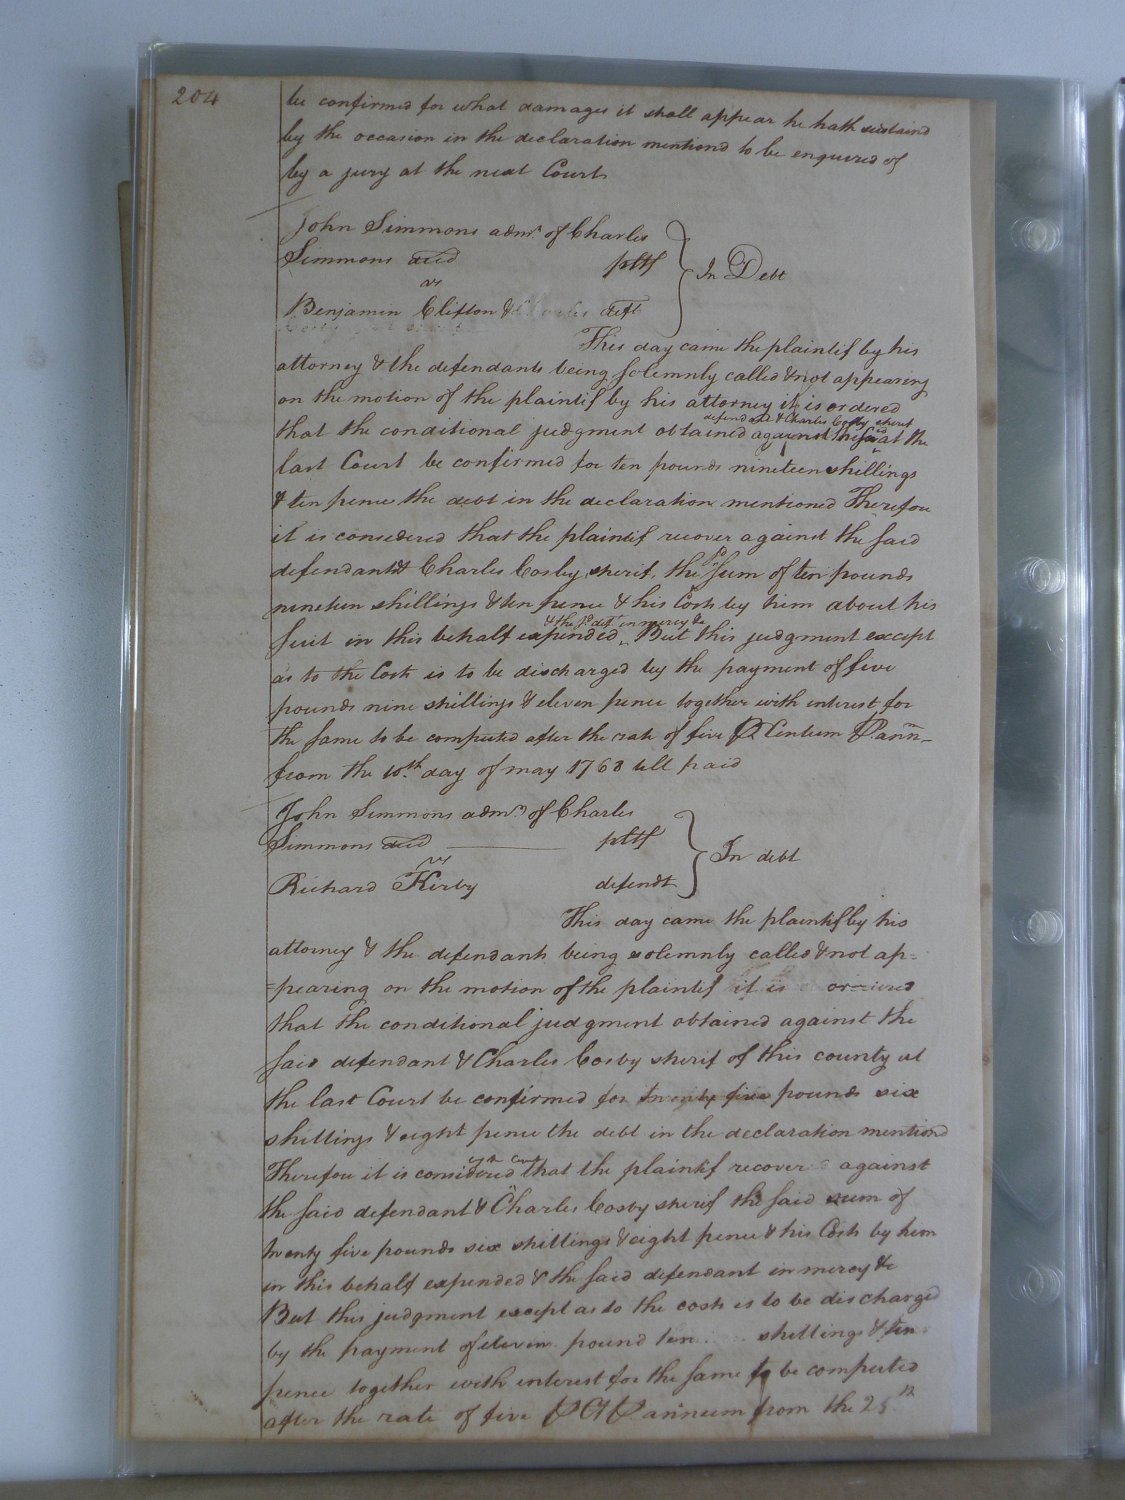 204
be confirmed for what damages it shall appear he hath sustaind
by the occasion in the declaration mentiond to be enquired of
by a jury at the next Court
John Simmons admr. of Charles
Simmons decd pltf
vs In Debt
Benjamin Clifton & deft
This day came the plaintif by his
attorney & the defendants being solemnly called & not appearing
on the motion of the plaintif by his attorney it is ordered
defendant & Charles Cosby sherif
that the conditional judgment obtained against the said at the
last Court be confirmed for ten pounds nineteen shillings
& ten pence the debt in the declaration mentioned Therefore
it is considered that the plaintif recover against the said
defendant & Charles Cosby sherif, the sd sum of ten pounds
nineteen shillings & ten pence & his Costs by him about his
& the sd deft in mercy &c
suit in this behalf expended, But this judgment except
as to the Costs is to be discharged by the payment of five
pounds nine shillings & eleven pence together with interest for
the same to be computed after the rate of five P Centum P. ann
from the 10th day of may 1768 till paid
John Simmons admr. of Charles
Simmons decd pltf
vs In debt
Richard Kirby defendt
This day came the plaintif by his
attorney & the defendants being solemnly called & not ap=
=pearing on the motion of the plaintif it is ordered
that the conditional judgment obtained against the
said defendant & Charles Cosby sherif of this county at
the last Court be confirmed for twenty five pounds six
shillings & eight pence the debt in the declaration mentiond
by the Court
Therefore it is considered that the plaintif recover against
the said defendant & Charles Cosby sherif the said sum of
twenty five pounds six shillings & eight pence & his Costs by him
in this behalf expended & the said defendant in mercy &c
But this judgment except as to the costs is to be discharged
by the payment of eleven pound ten shillings & ten
pence together with interest for the same to be computed
after the rate of five P Ct P annum from the 25th